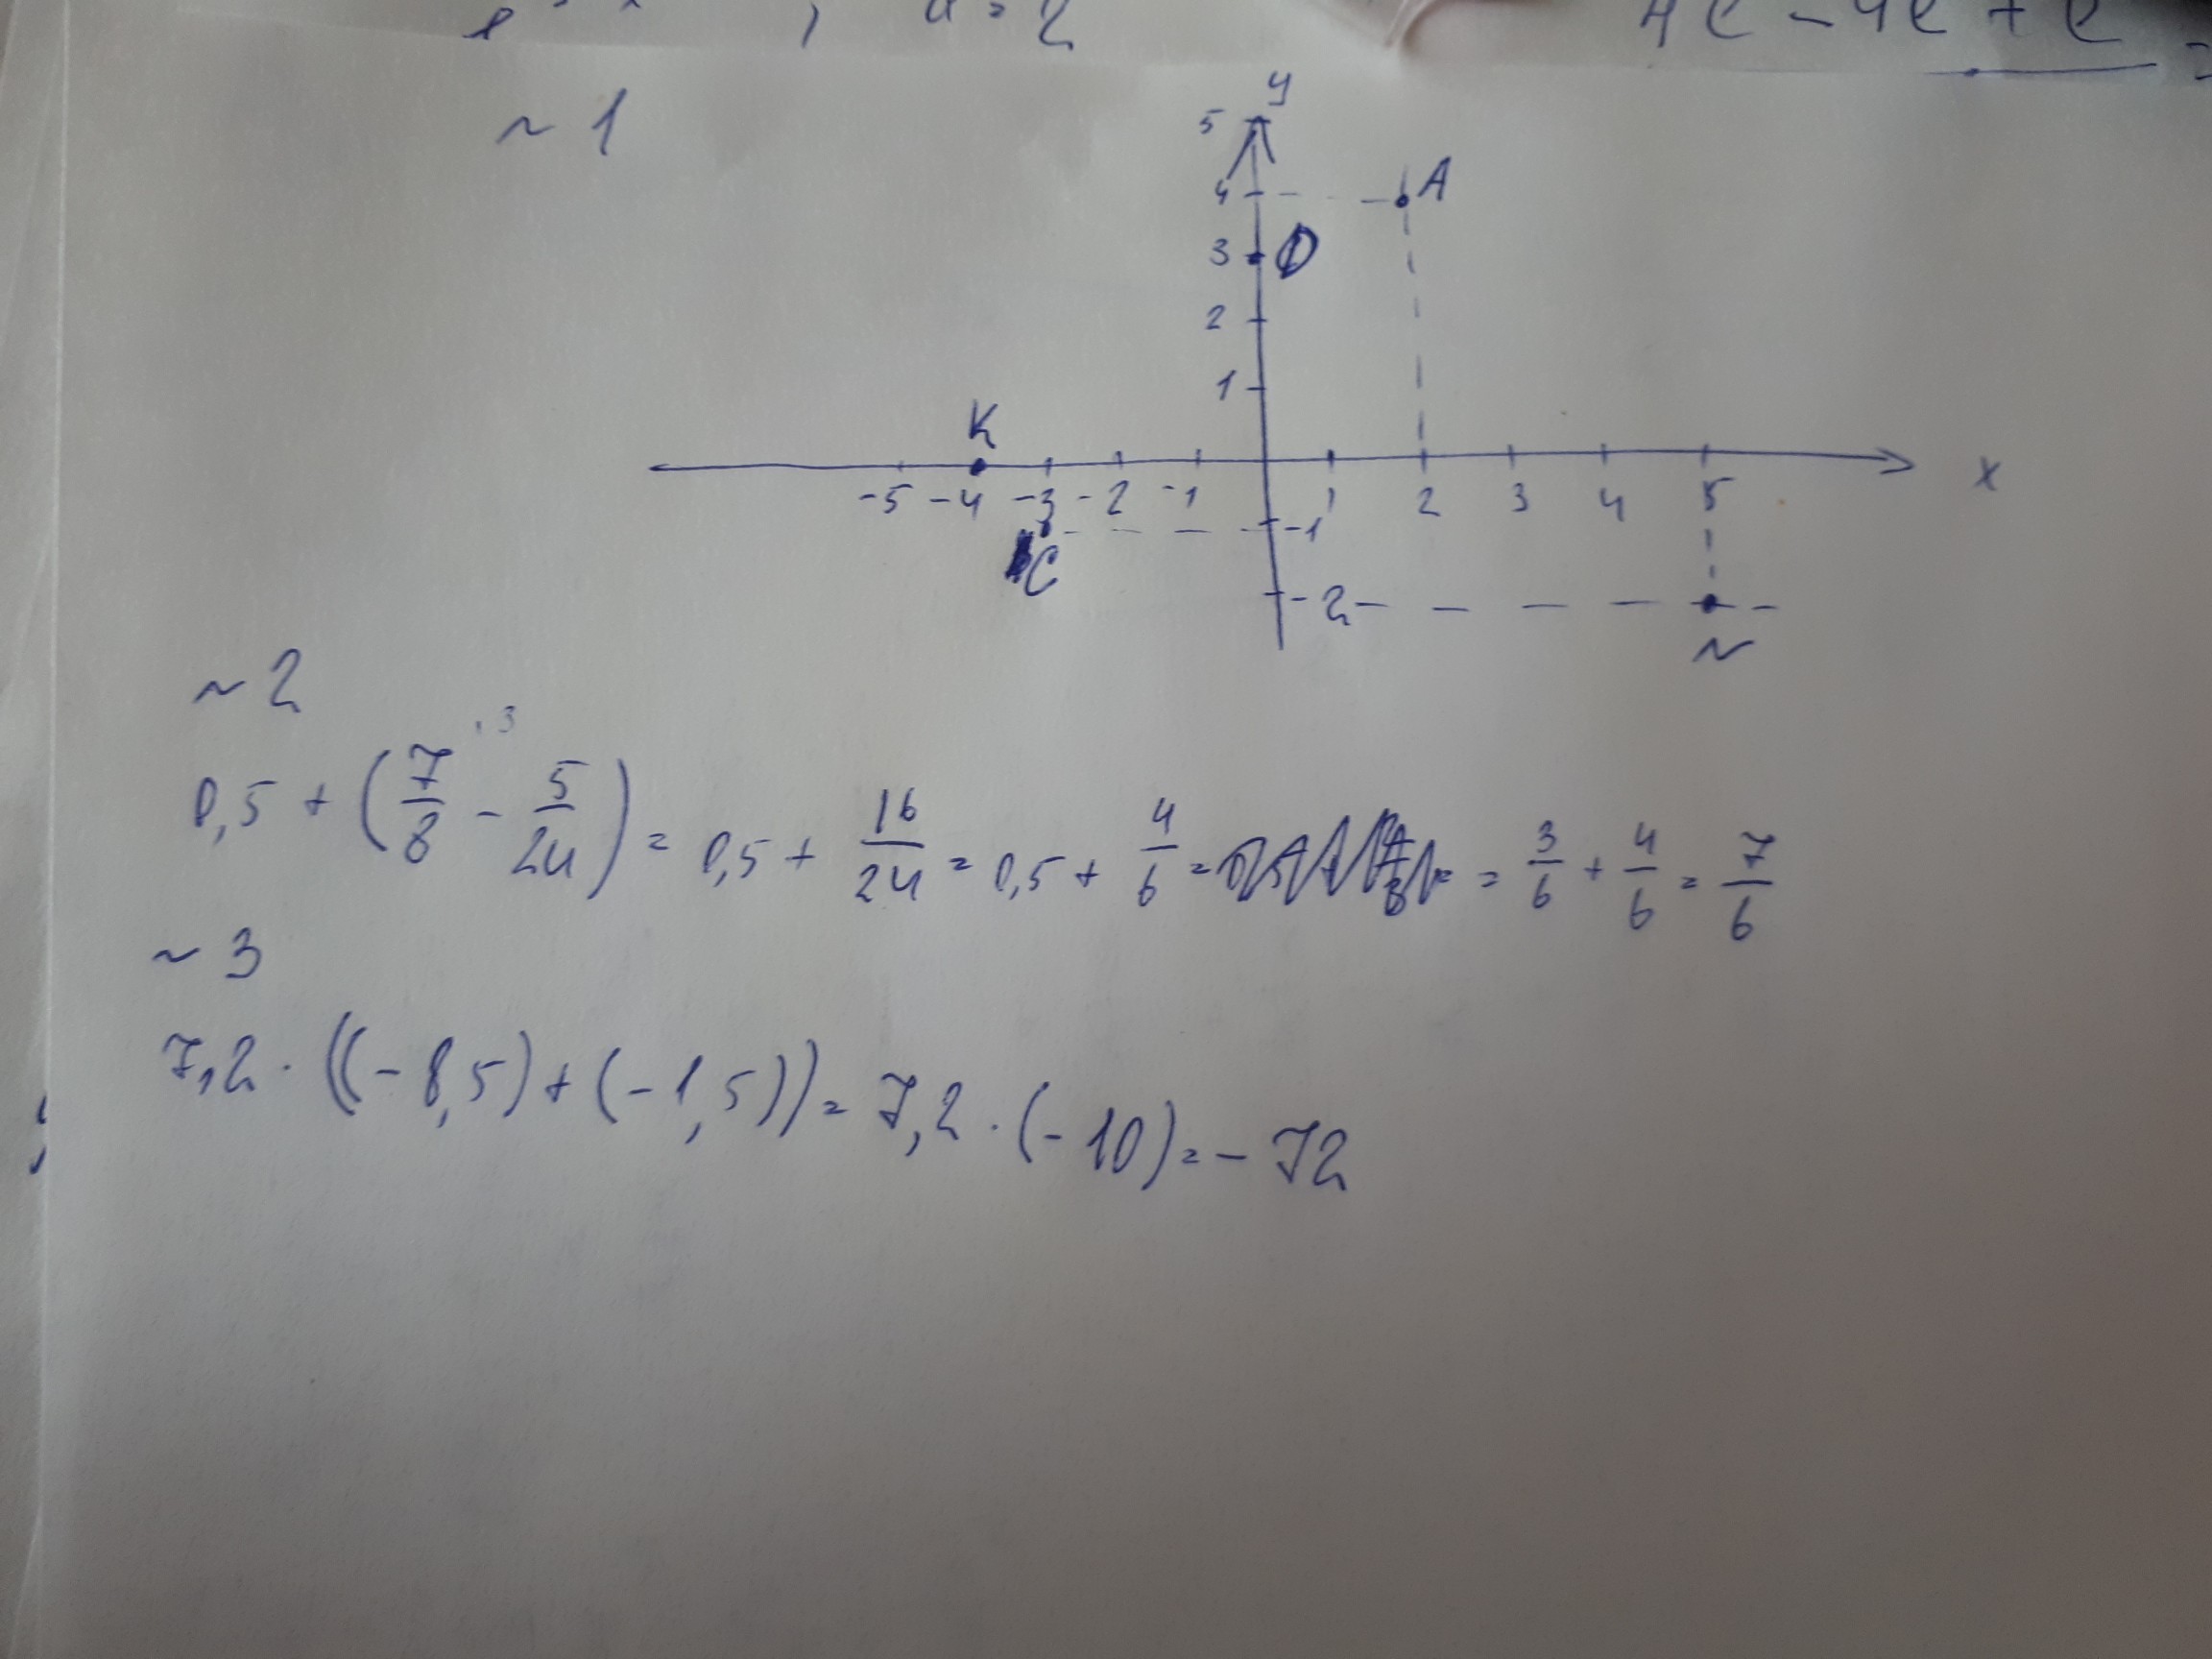 , a = 2
4c - 4c + c =
~ 1
y
5
4 A
3 D
2
1
K
x
-5 -4 -3 -2 -1 1 2 3 4 5
-1
C
-2
N
~ 2
· 3
0,5 + (7/8 - 5/24) = 0,5 + 16/24 = 0,5 + 4/6 = = 3/6 + 4/6 = 7/6
~ 3
7,2 · ((-8,5) + (-1,5)) = 7,2 · (-10) = -72